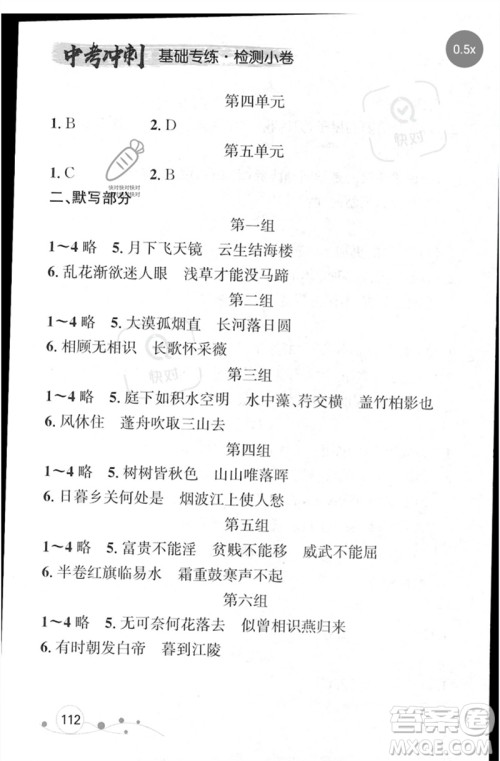 中考冲刺 基础专练·检测小卷
0.5x
第四单元
1. B 2. D
第五单元
1. C 2. B
快对
快对快对快对
二、默写部分
第一组
1～4 略 5. 月下飞天镜 云生结海楼
6. 乱花渐欲迷人眼 浅草才能没马蹄
第二组
1～4 略 5. 大漠孤烟直 长河落日圆
6. 相顾无相识 长歌怀采薇
快对
第三组
1～4 略 5. 庭下如积水空明 水中藻、荇交横 盖竹柏影也
6. 风休住 蓬舟吹取三山去
第四组
1～4 略 5. 树树皆秋色 山山唯落晖
6. 日暮乡关何处是 烟波江上使人愁
第五组
1～4 略 5. 富贵不能淫 贫贱不能移 威武不能屈
6. 半卷红旗临易水 霜重鼓寒声不起
第六组
1～4 略 5. 无可奈何花落去 似曾相识燕归来
6. 有时朝发白帝 暮到江陵
112
答案圈
MXQE.COM